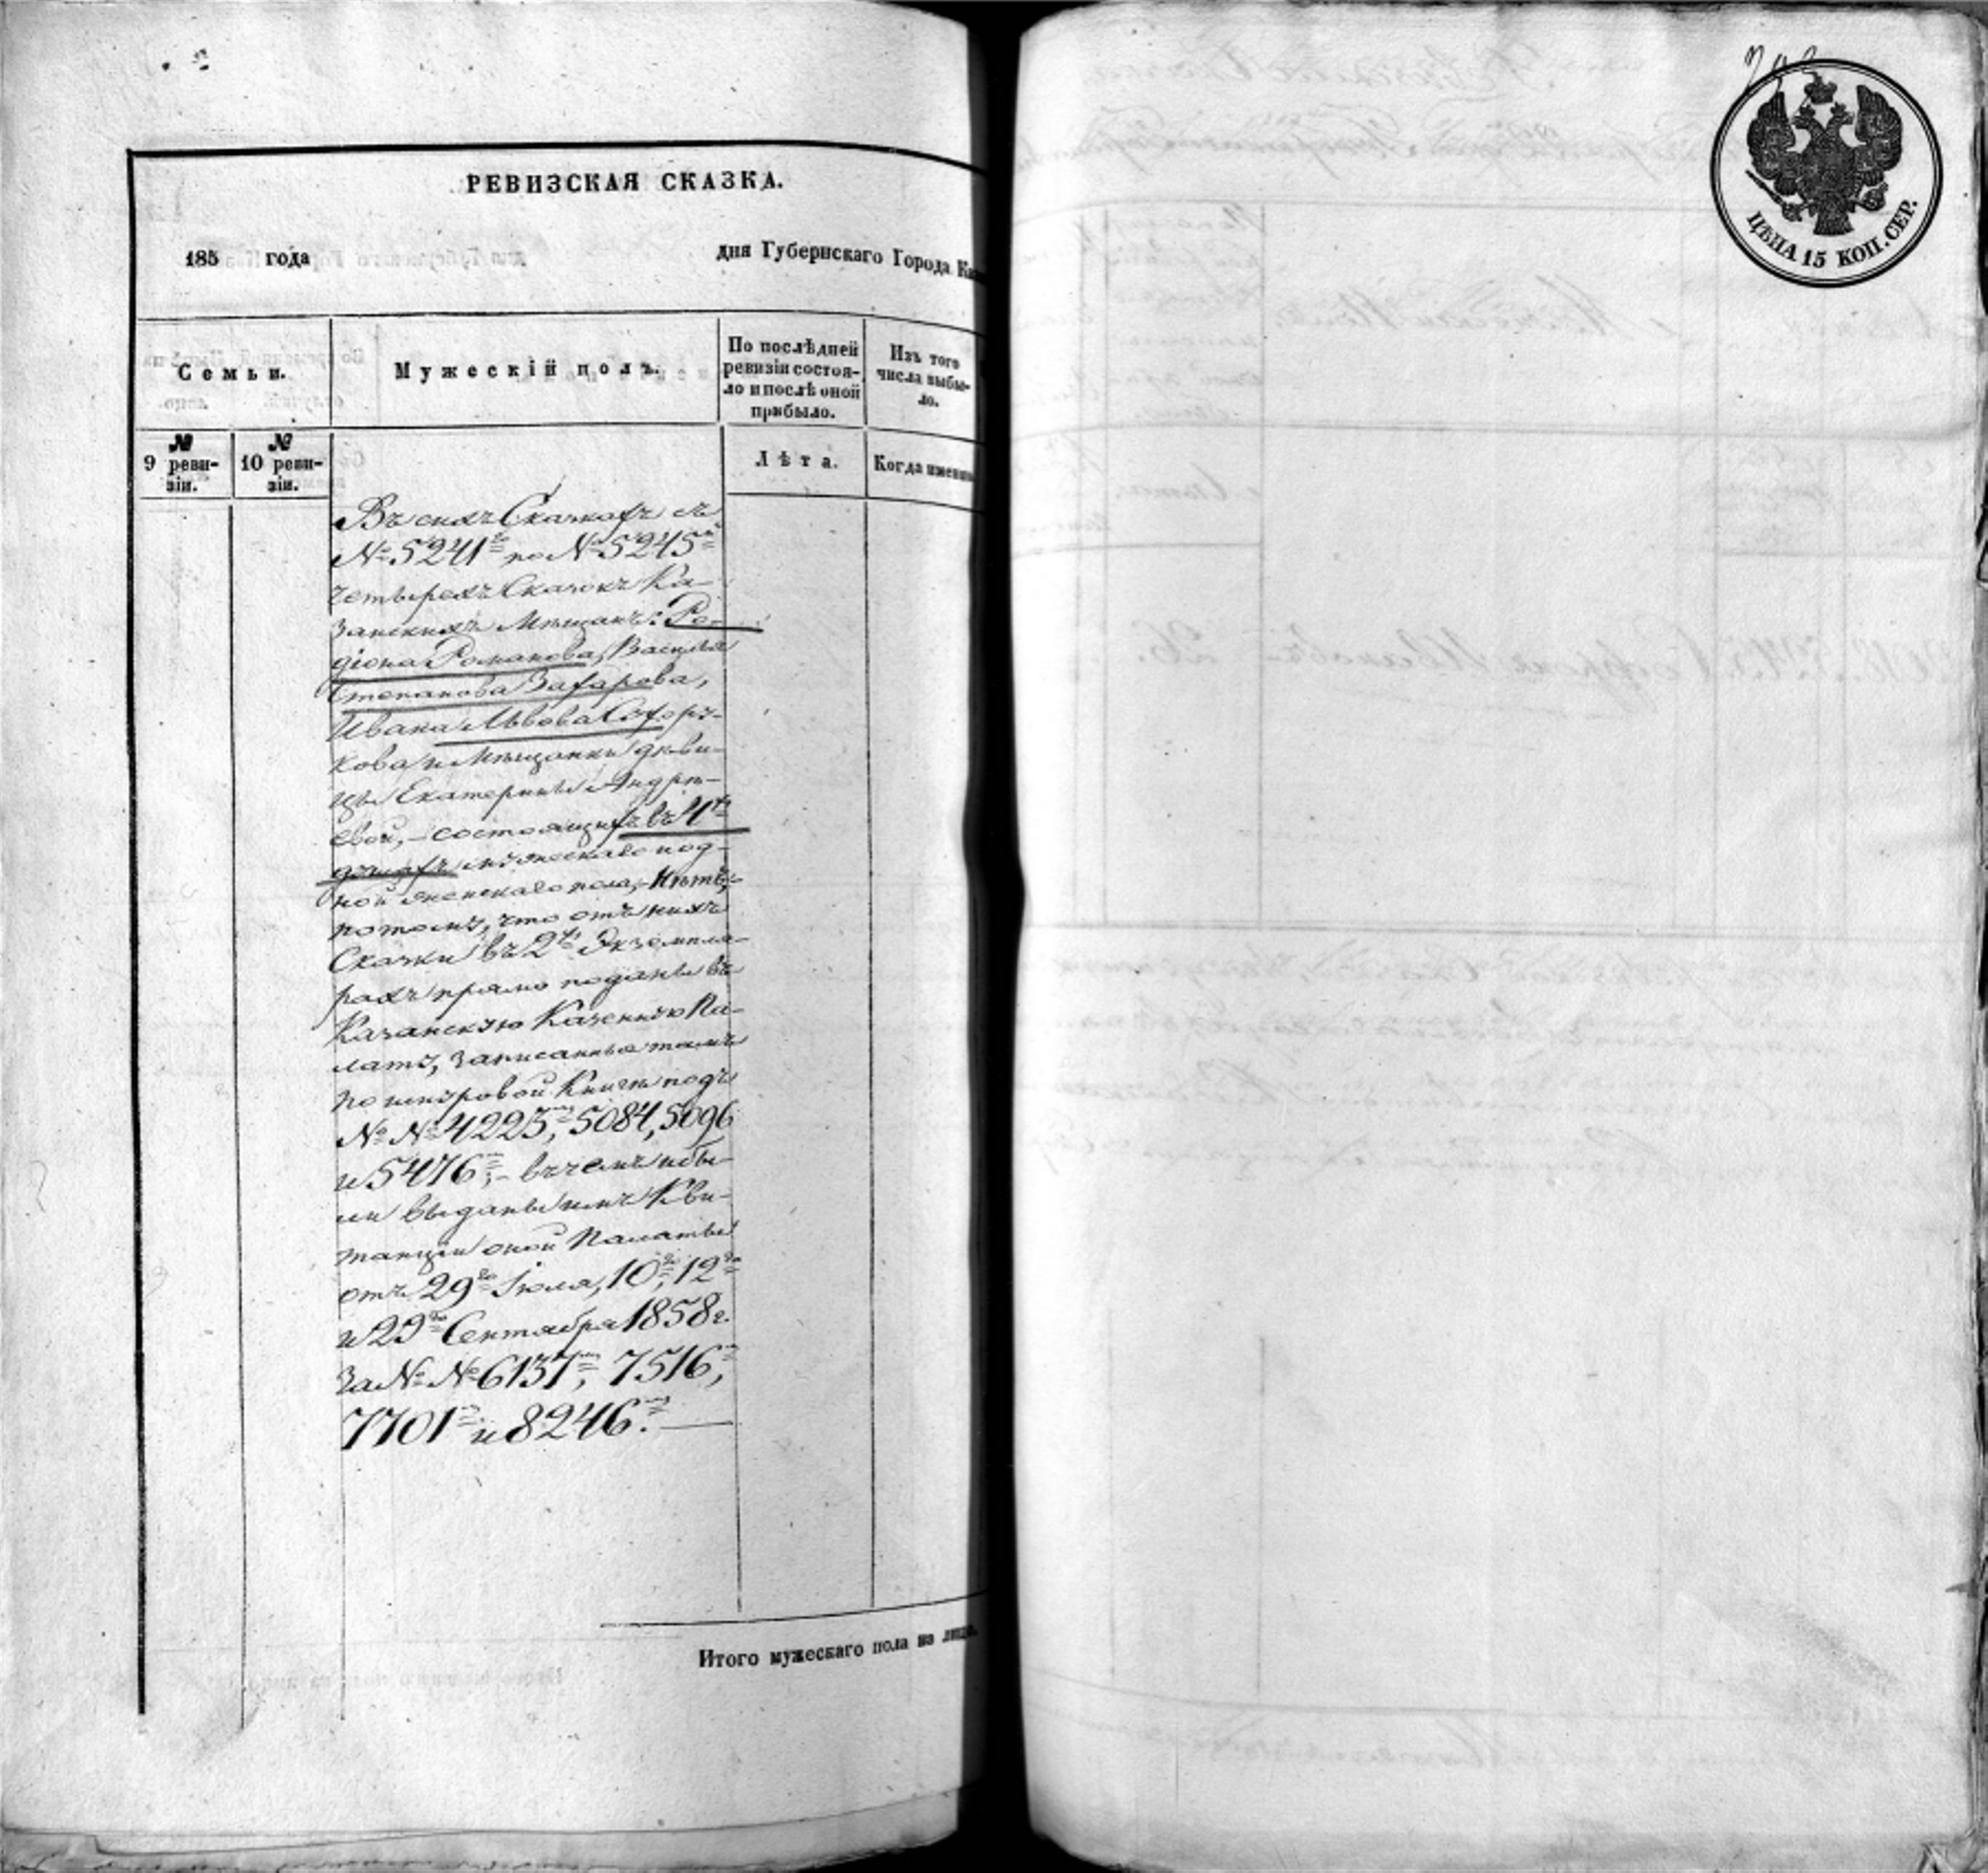 РЕВИЗСКАЯ СКАЗКА.
185 года дня Губернскаго Города Каз
Семьи.
Мужескій полъ.
По послѣдней ревизіи состоя-
ло и послѣ оной прибыло.
Изъ того числа выбы-
ло.
№ 9 реви-
зіи.
№ 10 реви-
зіи.
Лѣта.
Когда именно
Въ сихъ Сказкахъ съ
№ 5241го по № 5245й
четырехъ Сказокъ Ка-
занскихъ Мѣщанъ: Ро-
діона Романова, Василья
Степанова Захарова,
Ивана Львова
кова и Мѣщанки дѣви-
цы Екатерины Андрѣ-
евой, – состоящихъ въ 4хъ
душахъ мужескаго и од-
ной женскаго пола, – Нѣтъ,
потому, что отъ нихъ
Сказки въ 2хъ Экземпля-
рахъ прямо поданы въ
Казанскую Казенную Па-
лату, записанныя тамъ
по шнуровой Книгѣ подъ
№ № 4223, 5084, 5096
и 5476; – въ чемъ и бы-
ли выданы имъ Кви-
танціи оной Палаты
отъ 29го Іюля, 10го, 12го
и 29го Сентября 1858 г.
за № № 6137, 7516,
7701 и 8246. —
Итого мужескаго пола на лицо.
ЦѢНА 15 КОП. СЕР.